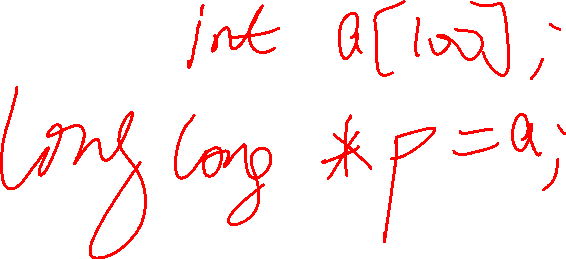 int a[100];
long long *p=a;